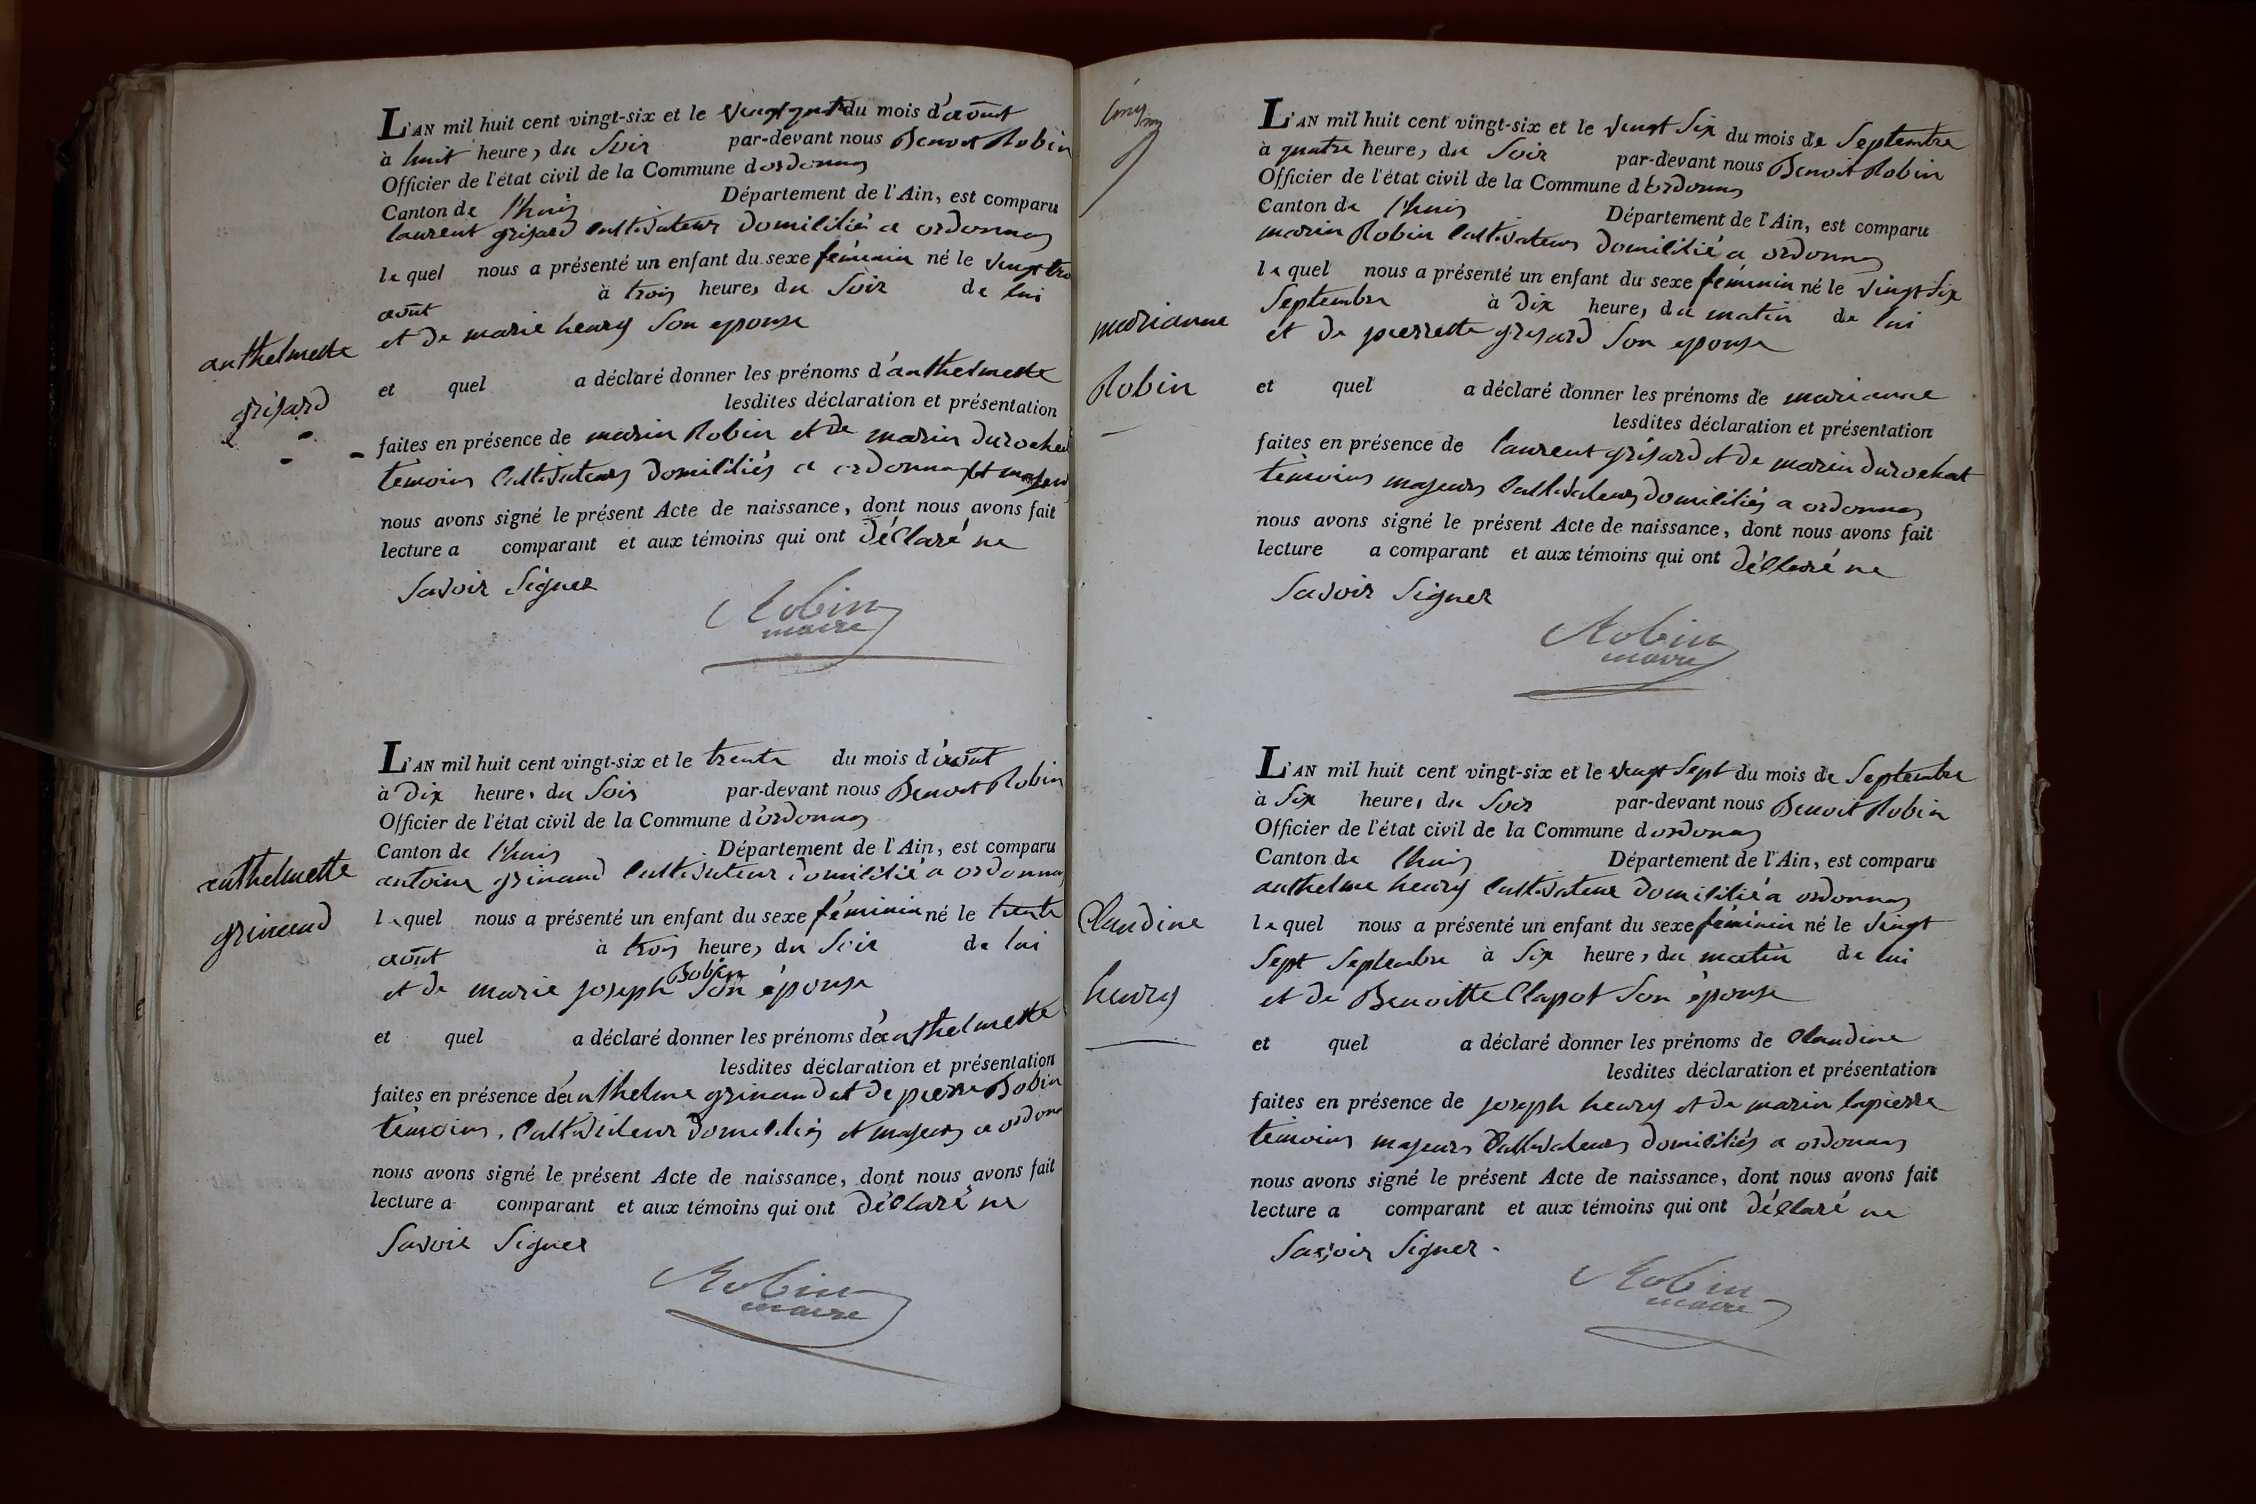 L'AN mil huit cent vingt-six et le vingt quatre du mois d'août
à huit heures du Soir par-devant nous Benoit Robin
Officier de l'état civil de la Commune d'ordonnas
Canton de l'huis Département de l'Ain, est comparu
laurent grisard Cultivateur domicilié a ordonnas
lequel nous a présenté un enfant du sexe féminin né le vingt tro
août à trois heures du Soir de lui
et de marie henry Son epouse
anthelmette
grisard
et quel a déclaré donner les prénoms d'anthelmette
lesdites déclaration et présentation
faites en présence de marin Robin et de marin durochat
témoins Cultivateurs domiciliés a ordonnas et majeurs
nous avons signé le présent Acte de naissance, dont nous avons fait
lecture a comparant et aux témoins qui ont déclaré ne
Savoir Signer
Robin
maire
L'AN mil huit cent vingt-six et le trente du mois d'août
à dix heures du Soir par-devant nous Benoit Robin
Officier de l'état civil de la Commune d'ordonnas
Canton de l'huis Département de l'Ain, est comparu
antoine grinand Cultivateur domicilié a ordonnas
lequel nous a présenté un enfant du sexe féminin né le trente
août à trois heures du Soir de lui
et de marie joseph Robin Son épouse
anthelmette
grinand
et quel a déclaré donner les prénoms d'anthelmette
lesdites déclaration et présentation
faites en présence d'anthelme grinand et de pierre Robin
témoins, Cultivateur domiciliés et majeurs a ordonna
nous avons signé le présent Acte de naissance, dont nous avons fait
lecture a comparant et aux témoins qui ont déclaré ne
Savoir Signer
Robin
maire
L'AN mil huit cent vingt-six et le vingt Six du mois de Septembre
à quatre heures du Soir par-devant nous Benoit Robin
Officier de l'état civil de la Commune d'ordonnas
Canton de l'huis Département de l'Ain, est comparu
marin Robin Cultivateur domicilié a ordonnas
lequel nous a présenté un enfant du sexe féminin né le vingt Six
Septembre à dix heures du matin de lui
et de pierrette grisard Son epouse
marianne
Robin
et quel a déclaré donner les prénoms de marianne
lesdites déclaration et présentation
faites en présence de laurent grisard et de marin durochat
témoins majeurs Cultivateurs domiciliés a ordonnas
nous avons signé le présent Acte de naissance, dont nous avons fait
lecture a comparant et aux témoins qui ont déclaré ne
Savoir Signer
Robin
maire
L'AN mil huit cent vingt-six et le vingt Sept du mois de Septembre
à Six heures du Soir par-devant nous Benoit Robin
Officier de l'état civil de la Commune d'ordonnas
Canton de l'huis Département de l'Ain, est comparu
anthelme henry Cultivateur domicilié a ordonnas
lequel nous a présenté un enfant du sexe féminin né le vingt
Sept Septembre à Six heures du matin de lui
et de Benoitte Clapot Son épouse
Claudine
henry
et quel a déclaré donner les prénoms de Claudine
lesdites déclaration et présentation
faites en présence de joseph henry et de marin lapierre
témoins majeurs Cultivateurs domiciliés a ordonnas
nous avons signé le présent Acte de naissance, dont nous avons fait
lecture a comparant et aux témoins qui ont déclaré ne
Savoir Signer.
Robin
maire